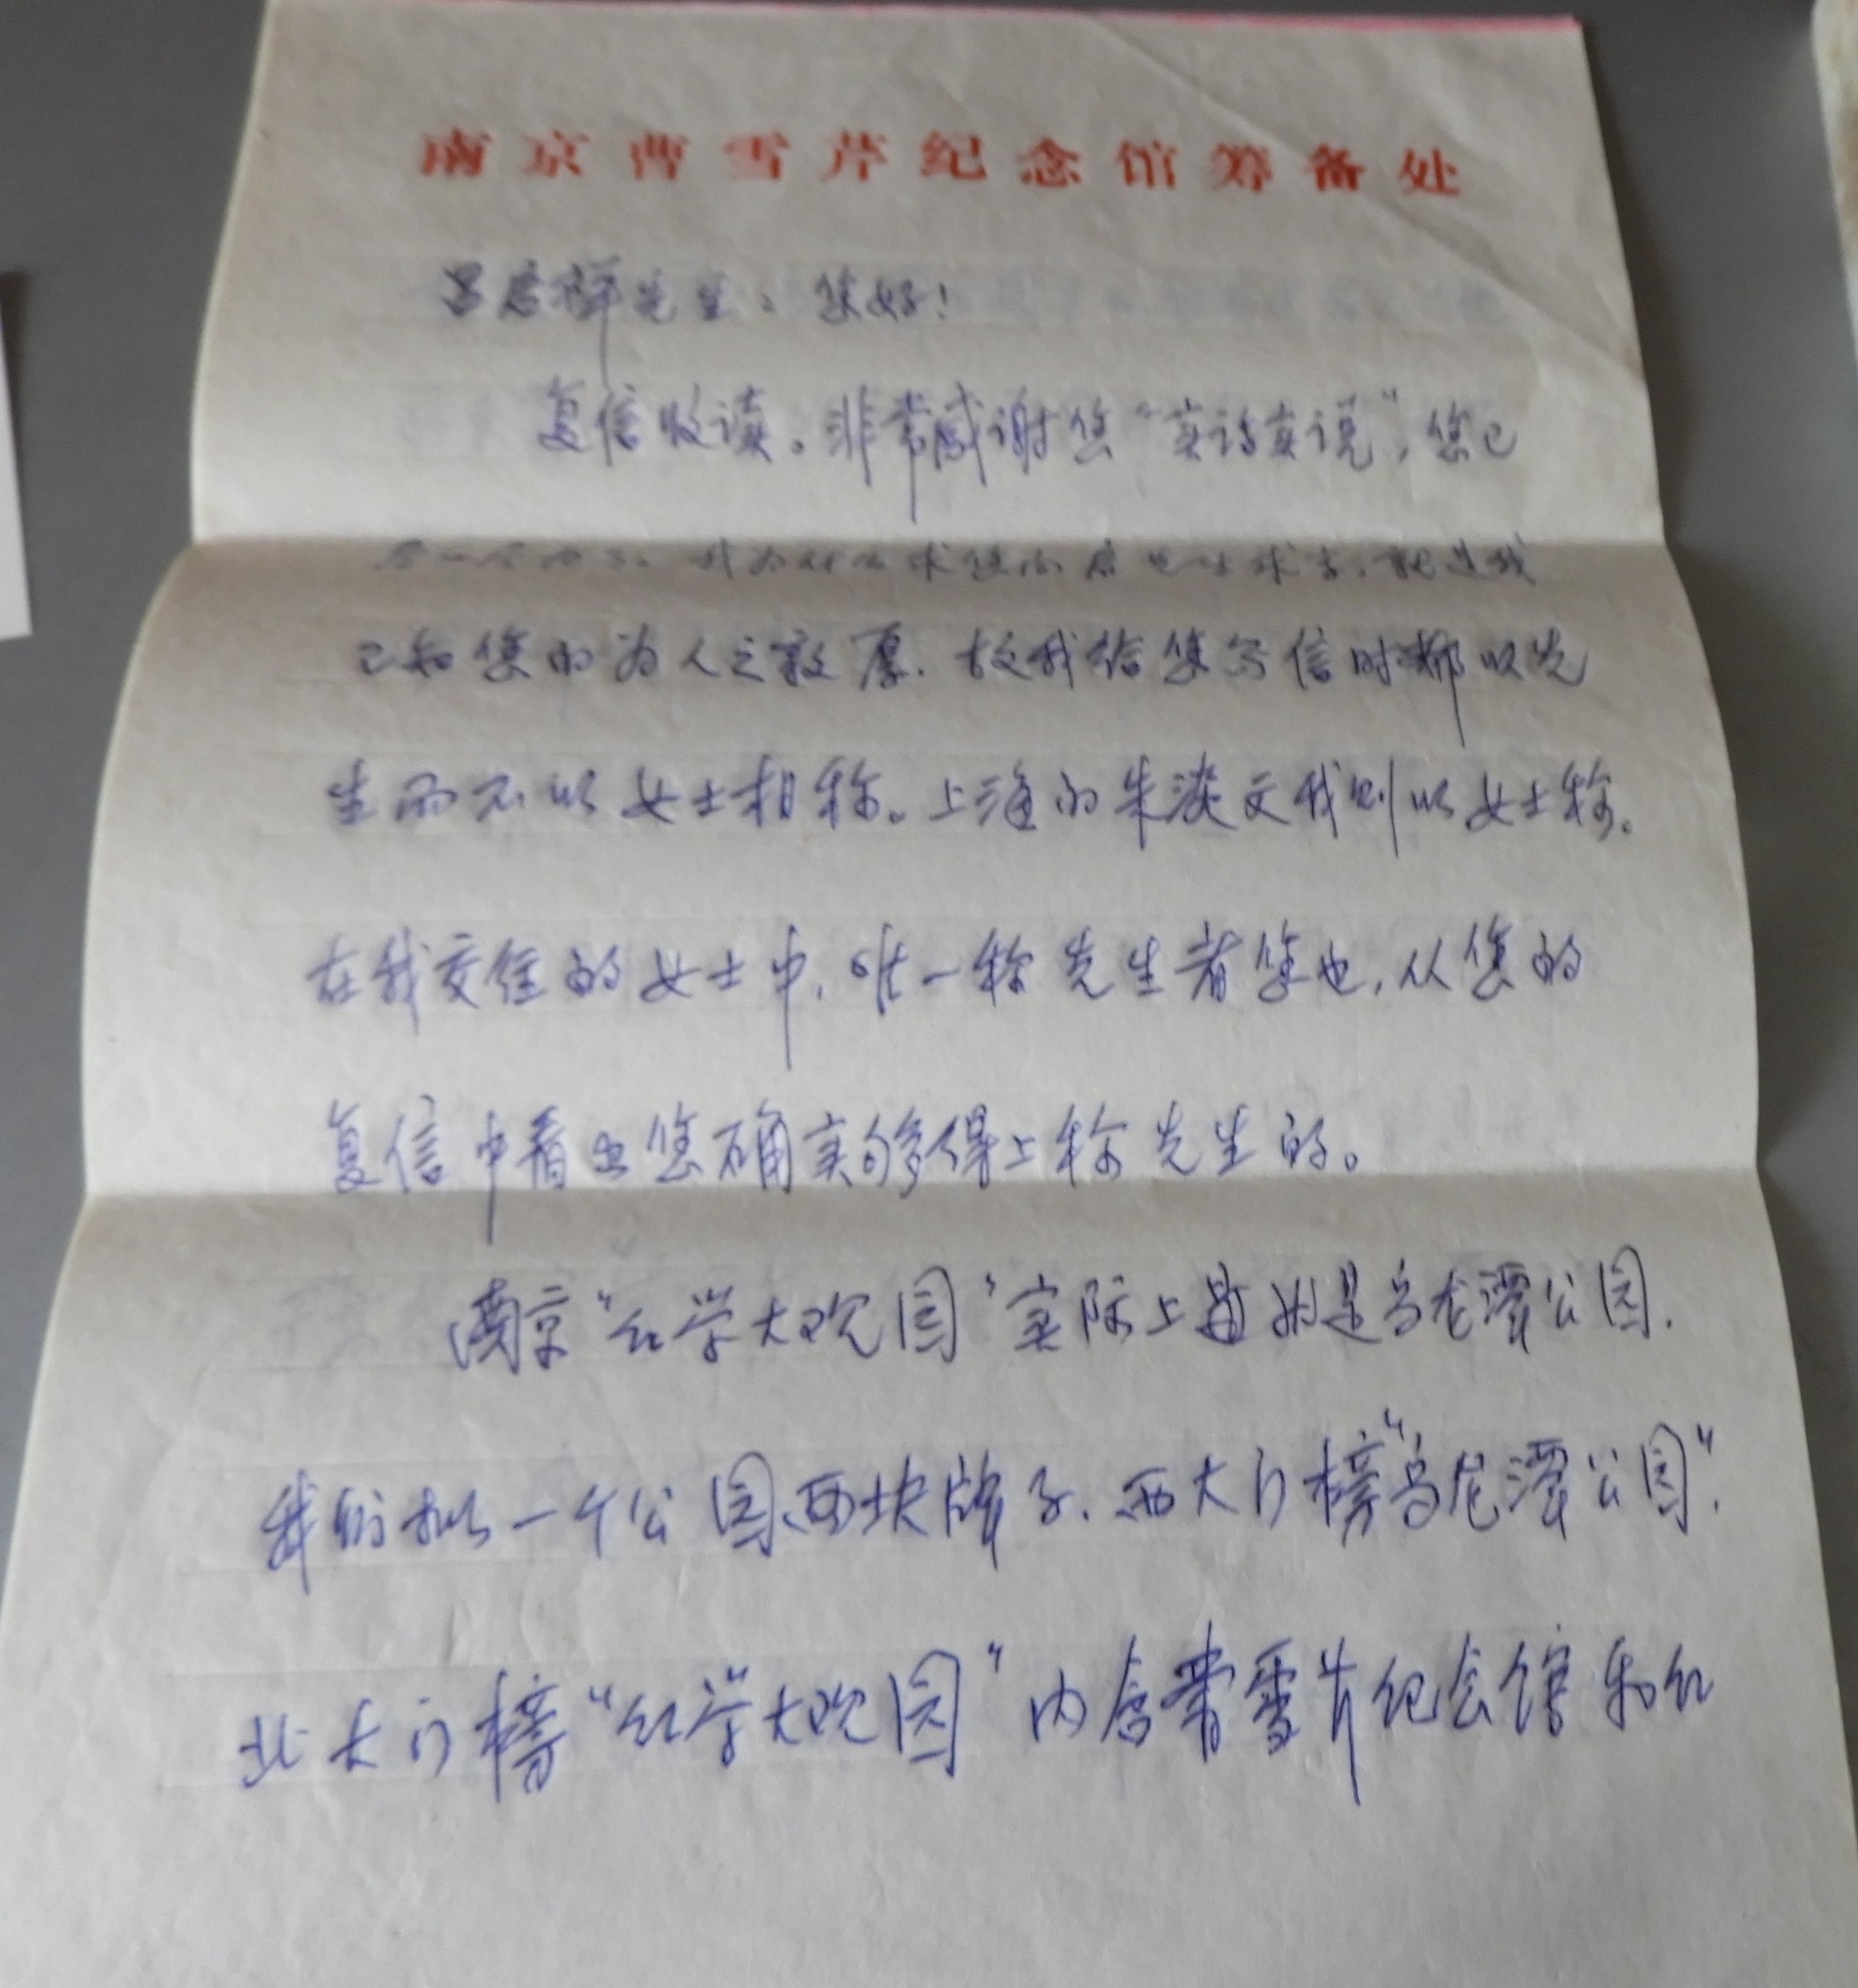 南京曹雪芹纪念馆筹备处
吕启祥先生：您好！
复信收读。非常感谢您“实话实说”，您已
我为什么求您向 先生求字，就是我
已知您的为人之敦厚，故我给您写信时都以先
生而不以女士相称。上海的朱淡文我则以女士称。
在我交往的女士中，唯一称先生者您也，从您的
复信中看出您确实够得上称先生的。
南京“红学大观园”实际上就是乌龙潭公园，
我们拟一个公园两块牌子，西大门榜“乌龙潭公园”，
北大门榜“红学大观园”内含曹雪芹纪念馆和红